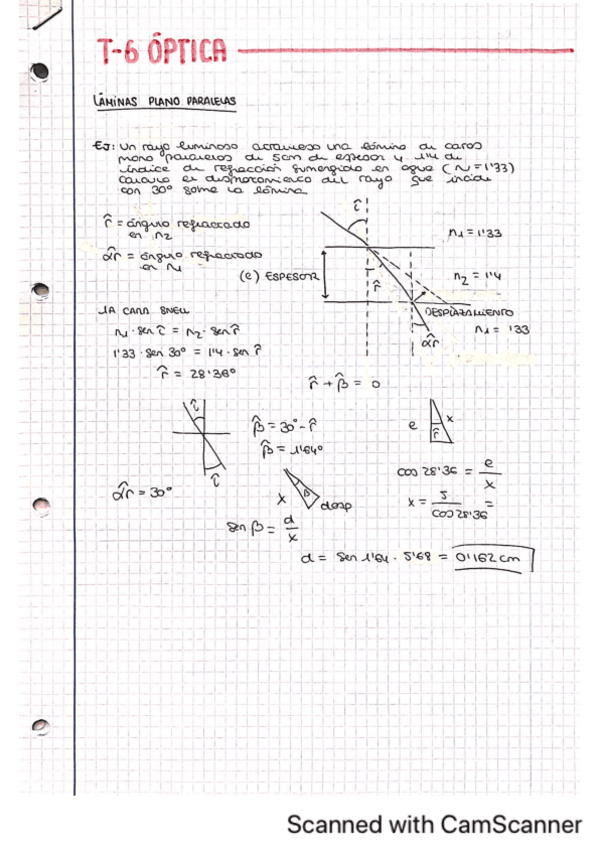 T-6 ÓPTICA
LÁMINAS PLANO PARALELAS
EJ: Un rayo luminoso atraviesa una lámina de caras
plano paralelas de 5cm de espesor y 1'4 de
índice de refracción sumergido en agua (n=1'33)
Calcula el desplazamiento del rayo que incide
con 30° sobre la lámina
r̂ = ángulo refractado
en n₂
αr̂ = ángulo refractado
en n₁
(e) ESPESOR
î
n₁ = 1'33
r̂
n₂ = 1'4
DESPLAZAMIENTO
n₁ = '33
αr̂
1A CARA SNELL
n₁ · sen î = n₂ · sen r̂
1'33 · sen 30° = 1'4 · sen r̂
r̂ = 28'36°
r̂ + β̂ = 0
î
î
β̂ = 30° - r̂
β̂ = 1'64°
e
r̂
x
αr̂ = 30°
x
β
desp
cos 28'36 = e/x
x = 5/cos 28'36 =
sen β = d/x
d = sen 1'64 · 5'68 = 0'162 cm
Scanned with CamScanner